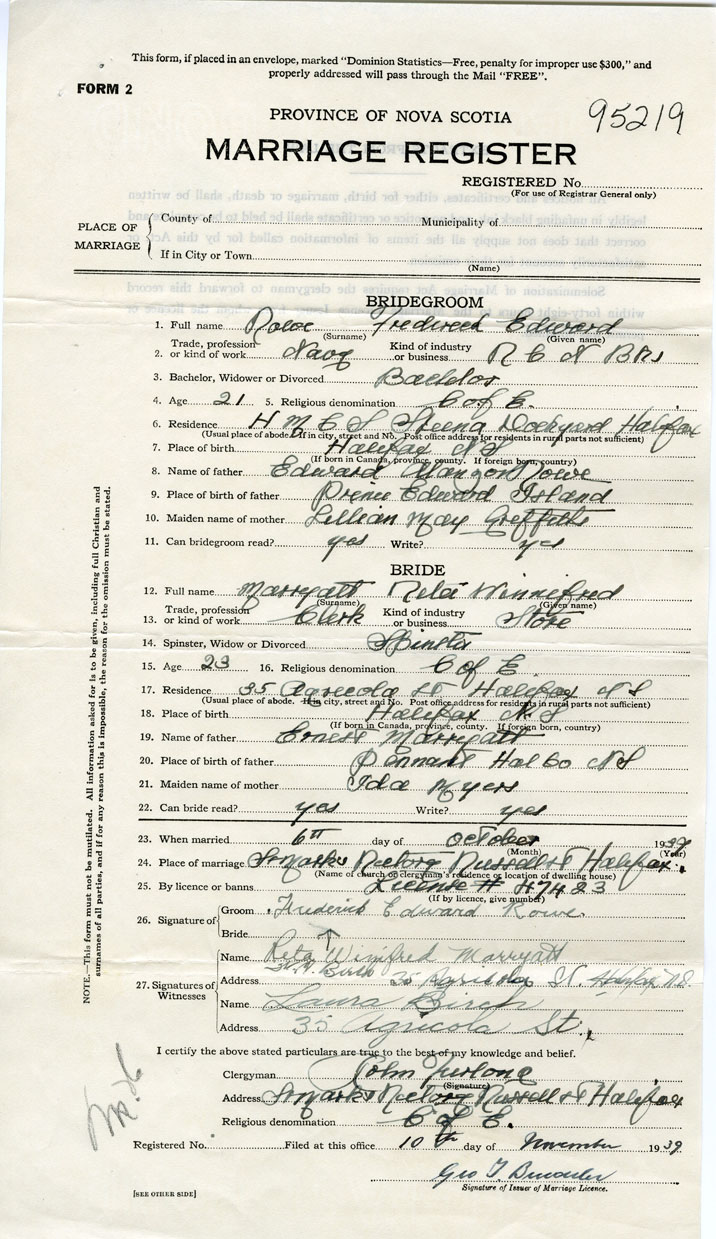 This form, if placed in an envelope, marked "Dominion Statistics—Free, penalty for improper use $300," and
properly addressed will pass through the Mail "FREE".
FORM 2
95219
PROVINCE OF NOVA SCOTIA
MARRIAGE REGISTER
REGISTERED No.
(For use of Registrar General only)
PLACE OF MARRIAGE
County of
Municipality of
If in City or Town
(Name)
BRIDEGROOM
1. Full name Rowe Frederick Edward
(Surname) (Given name)
2. Trade, profession or kind of work Navy Kind of industry or business R C N
3. Bachelor, Widower or Divorced Bachelor
4. Age 21 5. Religious denomination C of E.
6. Residence H M C S Skeena Dockyard Halifax
(Usual place of abode. If in city, street and No. Post office address for residents in rural parts not sufficient)
7. Place of birth Halifax N S
(If born in Canada, province, county. If foreign born, country)
8. Name of father Edward Rowe
9. Place of birth of father Prince Edward Island
10. Maiden name of mother Lillian May Greffiths
11. Can bridegroom read? yes Write? yes
BRIDE
12. Full name Marryatt Reta Winnefred
(Surname) (Given name)
13. Trade, profession or kind of work Clerk Kind of industry or business Store
14. Spinster, Widow or Divorced Spinster
15. Age 23 16. Religious denomination C of E.
17. Residence 35 Agricola St Halifax N S
(Usual place of abode. If in city, street and No. Post office address for residents in rural parts not sufficient)
18. Place of birth Halifax N. S
(If born in Canada, province, county. If foreign born, country)
19. Name of father Ernest Marryatt
20. Place of birth of father Pennant Hal Co N S
21. Maiden name of mother Ida Myers
22. Can bride read? yes Write? yes
23. When married 6th day of October 1939
(Month) (Year)
24. Place of marriage St Marks Rectory Russell St Halifax.
(Name of church or clergyman's residence or location of dwelling house)
25. By licence or banns License # 47423
(If by licence, give number)
26. Signature of
Groom Frederick Edward Rowe
Bride
27. Signatures of Witnesses
Name Reta Winifred Marryatt
Birch
Address 35 Agricola St. Halifax N.S.
Name Laura Birch
Address 35 Agricola St.
I certify the above stated particulars are true to the best of my knowledge and belief.
Clergyman John Furlong
(Signature)
Address St Marks Rectory Russell St Halifax
Religious denomination C of E.
Registered No. Filed at this office 10th day of November 1939
Geo T
Signature of Issuer of Marriage Licence.
[SEE OTHER SIDE]
NOTE.—This form must not be mutilated. All information asked for is to be given, including full Christian and
surnames of all parties, and if for any reason this is impossible, the reason for the omission must be stated.